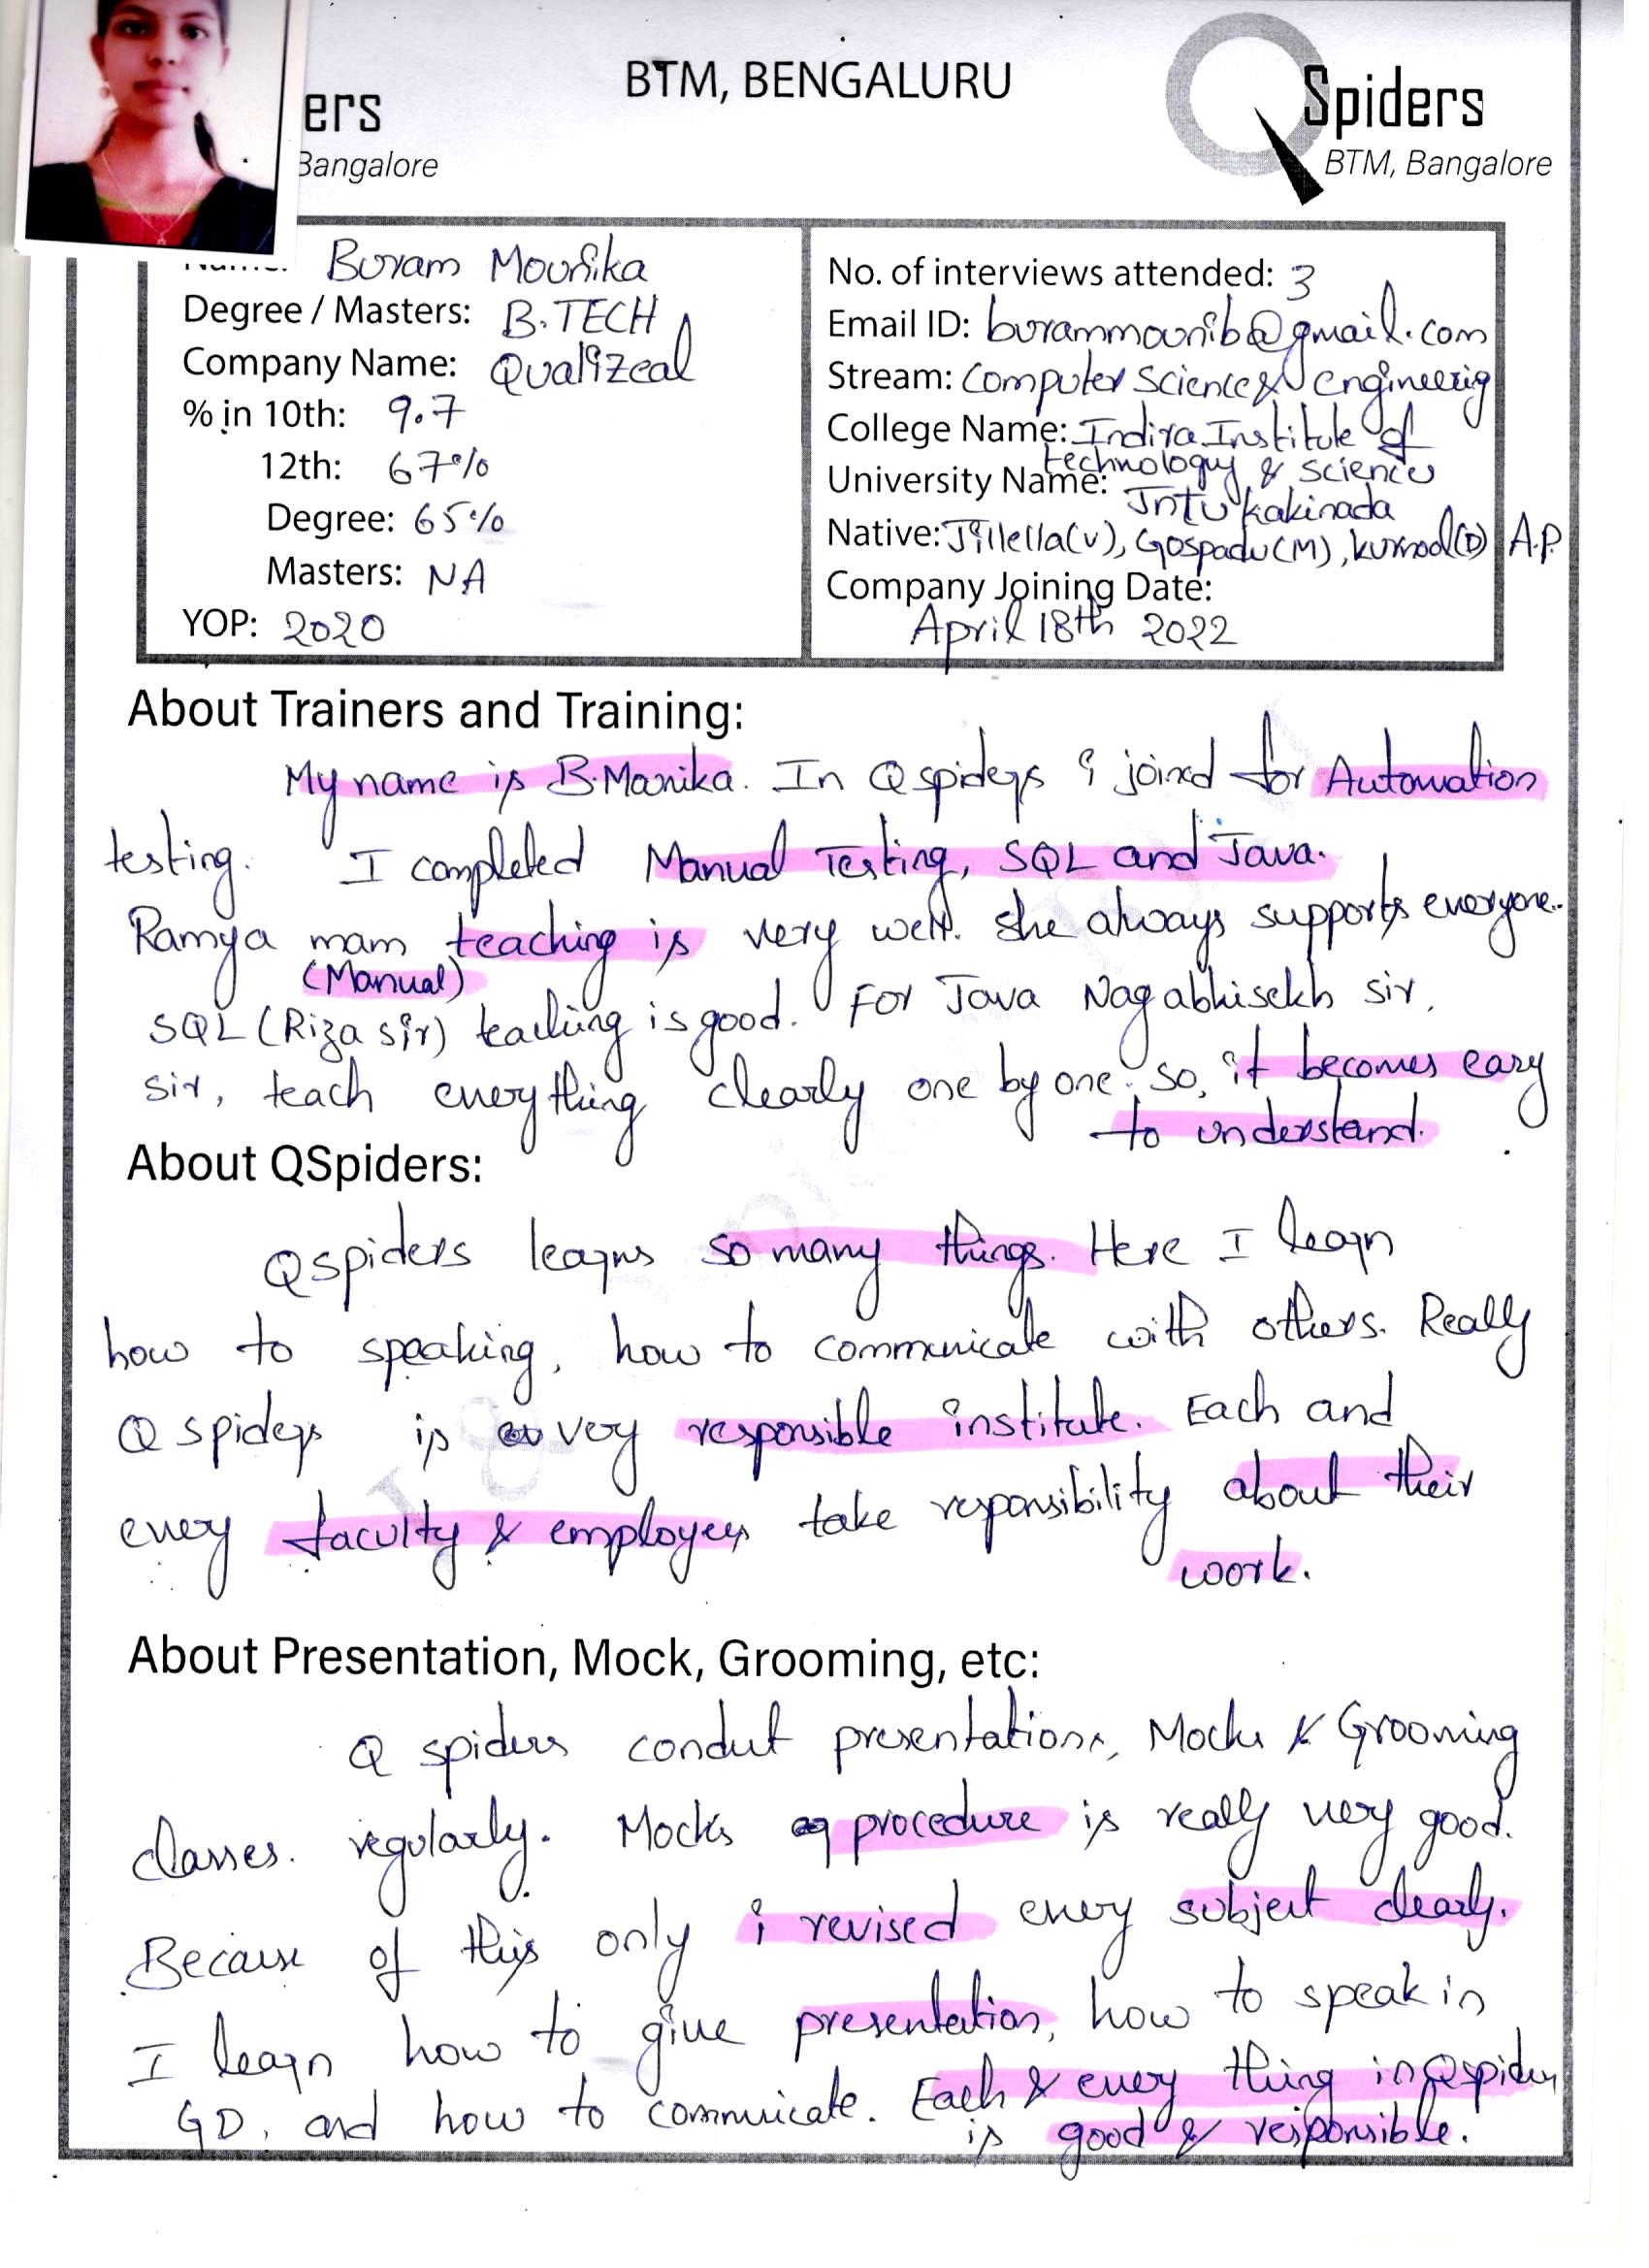 BTM, BENGALURU
ers
Bangalore
QSpiders
BTM, Bangalore
Buram Mounika
Degree / Masters: B.TECH
Company Name: Qualizeal
% in 10th: 9.7
12th: 67%
Degree: 65%
Masters: NA
YOP: 2020
No. of interviews attended: 3
Email ID: burammounib@gmail.com
Stream: Computer Science & Engineerig
College Name: Indira Institute of
technology & sciences
University Name: Jntu kakinada
Native: Jillella(v), Gospadu(M), kurnool(D) A.P.
Company Joining Date:
April 18th 2022
About Trainers and Training:
My name is B.Maonika. In Qspiders i joined for Automation
testing. I completed Manual Testing, SQL and Java.
Ramya mam teaching is very well. She always supports everyone.
(Manual)
SQL (Riza sir) teaching is good. For Java Nagabhisekh sir,
sir, teach everything clearly one by one. so, it becomes easy
to understand.
About QSpiders:
Qspiders learns so many things. Here I learn
how to speaking, how to communicate with others. Really
Q spiders is very responsible institute. Each and
every faculty & employees take responsibility about their
work.
About Presentation, Mock, Grooming, etc:
Q spiders conduct presentations, Mocks & Grooming
classes. regularly. Mocks procedure is really very good.
Because of this only i revised every subject clearly.
I learn how to give presentation, how to speak in
GD, and how to commuicate. Each & every thing in Qspiders
is good & responsible.